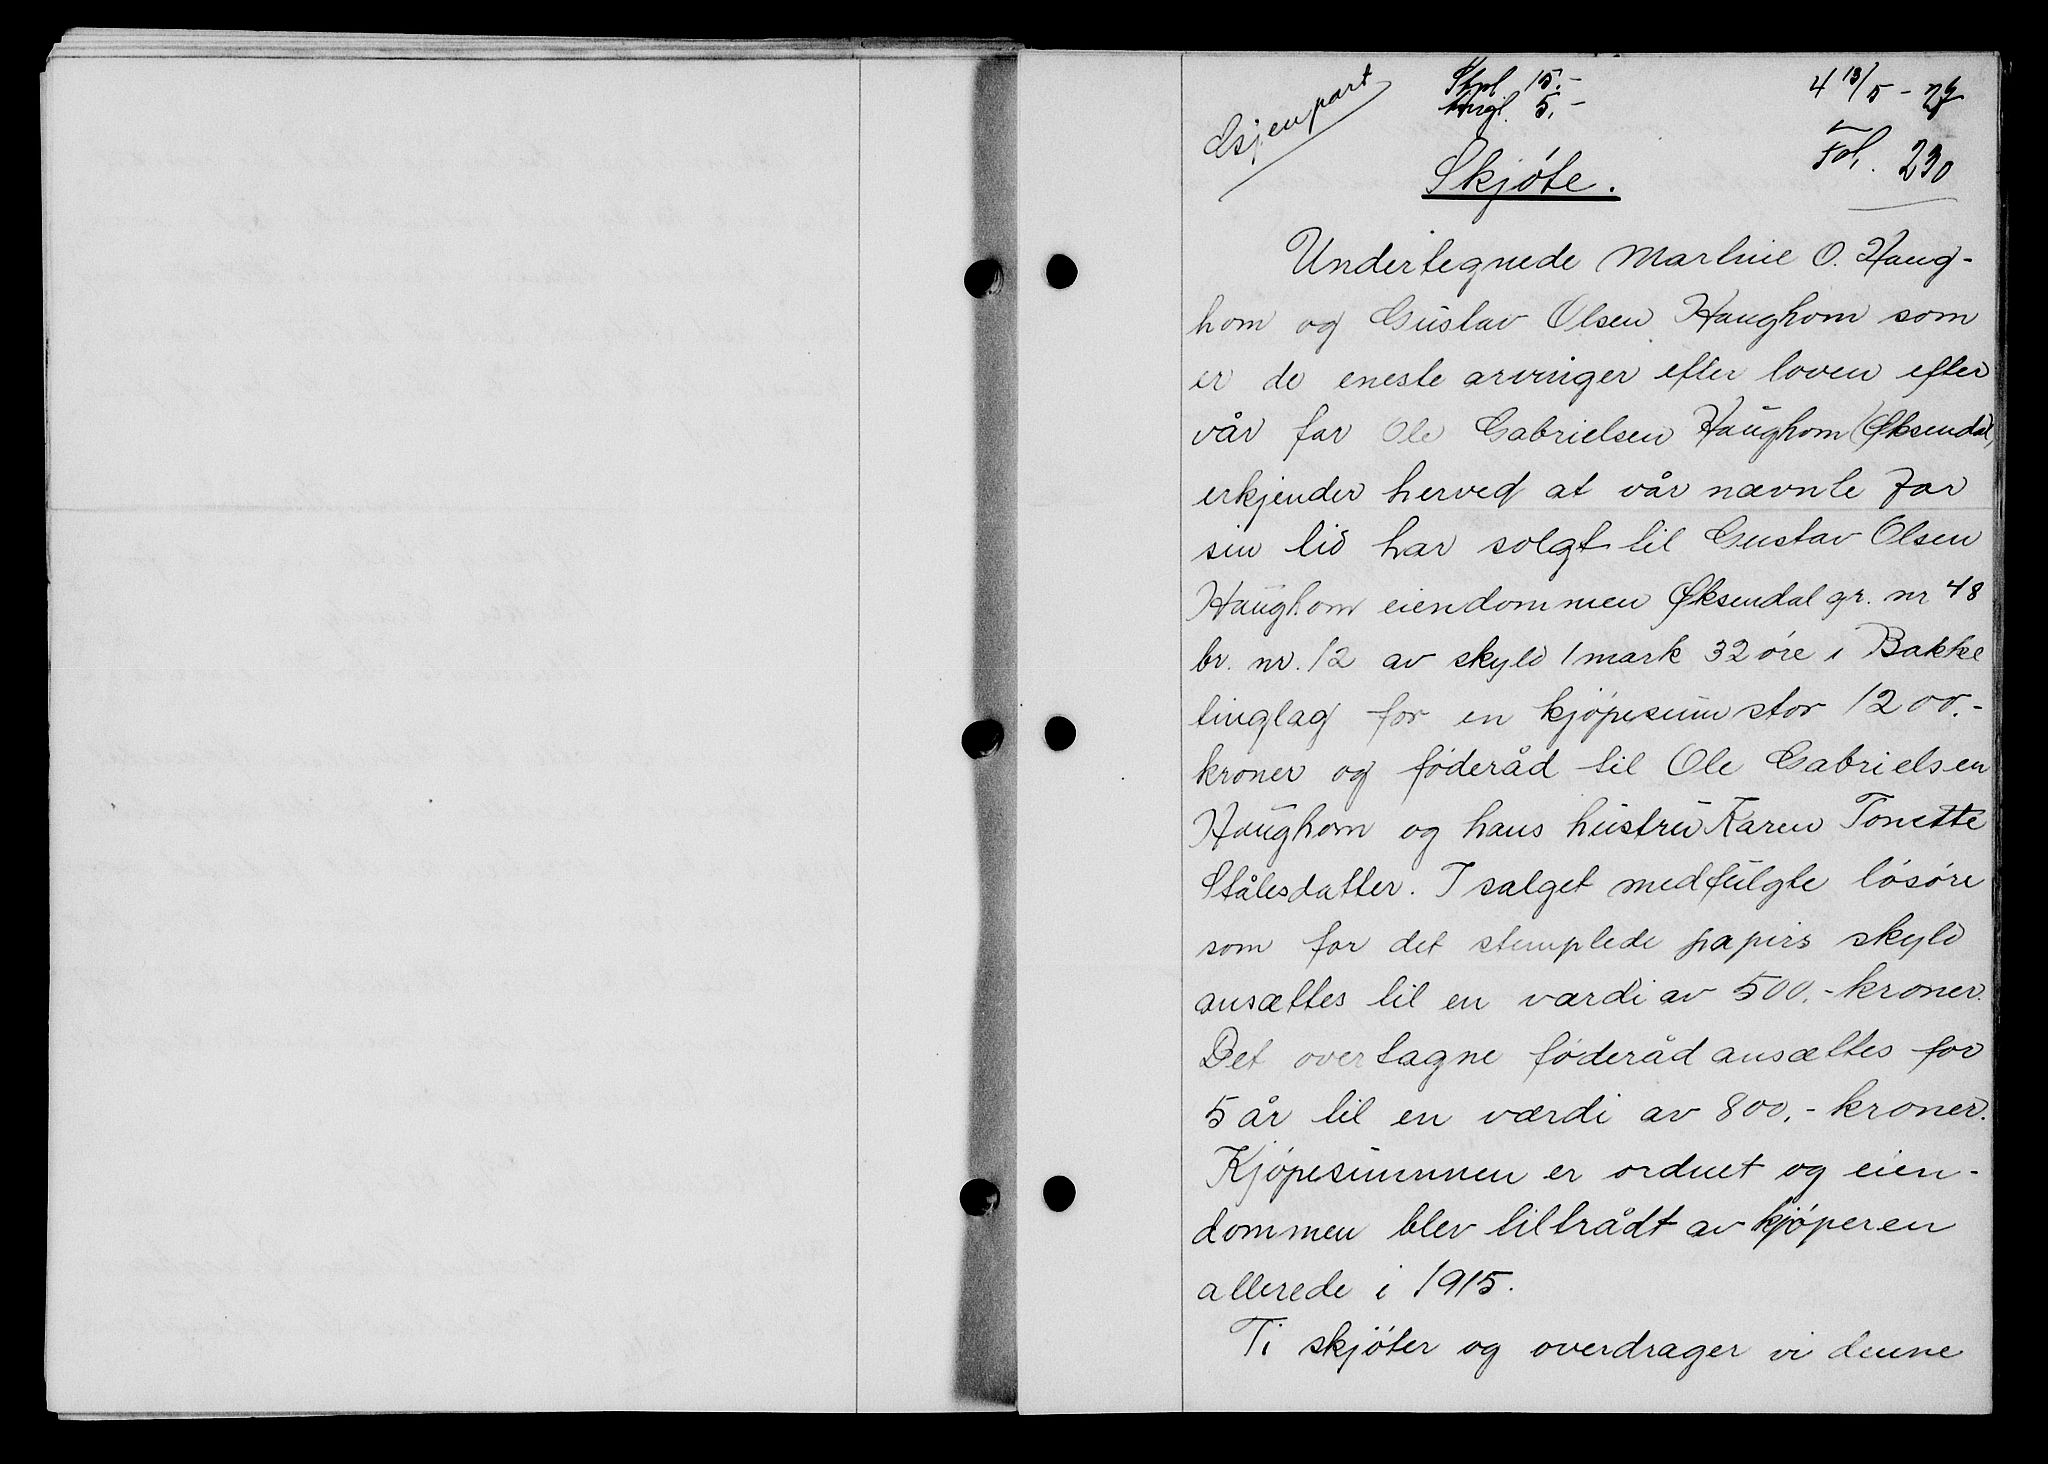 Gjenpart
Stpl 15.-
tingl. 5.-
4 13/5 - 27
Fol. 230
Skjøte.
Undertegnede Martine O. Haug-
hom og Gustav Olsen Haughom som
er de eneste arvinger efter loven efter
vår far Ole Gabrielsen Haughom (Øksendal)
erkjender herved at vår nævnte far
sin tid har solgt til Gustav Olsen
Haughom eiendommen Øksendal gr. nr 48
br. nr. 12 av skyld 1 mark 32 øre i Bakke
tinglag for en kjøpesum stor 1200.-
kroner og føderåd til Ole Gabrielsen
Haughom og hans hustru Karen Tonette
Stålesdatter. I salget medfulgte løsøre
som for det stemplede papirs skyld
ansættes til en værdi av 500.- kroner.
Det overtagne føderåd ansættes for
5 år til en værdi av 800.- kroner.
Kjøpesummen er ordnet og eien-
dommen blev tiltrådt av kjøperen
allerede i 1915.
Ti skjøter og overdrager vi denne